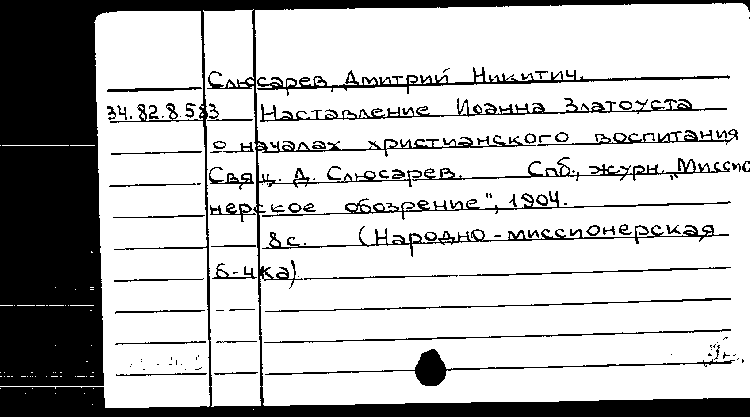 Слюсарев, Дмитрий Никитич.
34.82.8.583 Наставление Иоанна Златоуста
о началах христианского воспитания
Свящ. Д. Слюсарев. Спб., журн. „Миссио
нерское обозрение", 1904.
8 с. (Народно-миссионерская
б-чка)